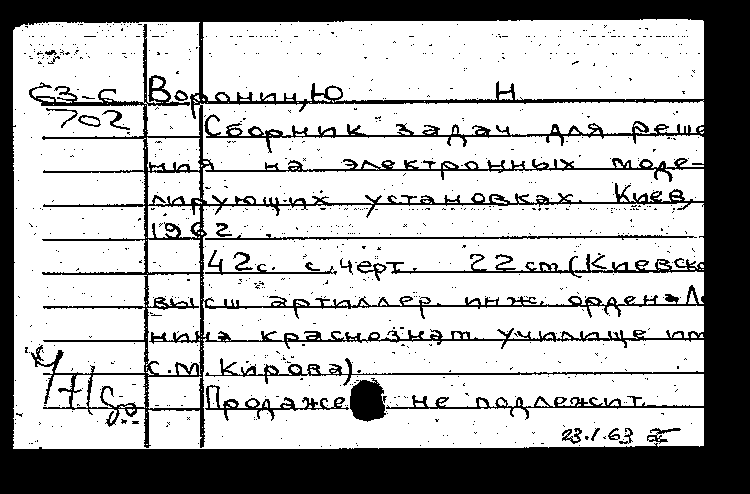 63-6 Воронин, Ю Н
702 Сборник задач для реше
ния на электронных моде-
лирующих установках. Киев,
1962.
42с. с черт. 22 cm (Киевско
высш артиллер. инж. ордена Ле
нина краснознам. училище им
С.М. Кирова).
Продаже не подлежит
23.1.63